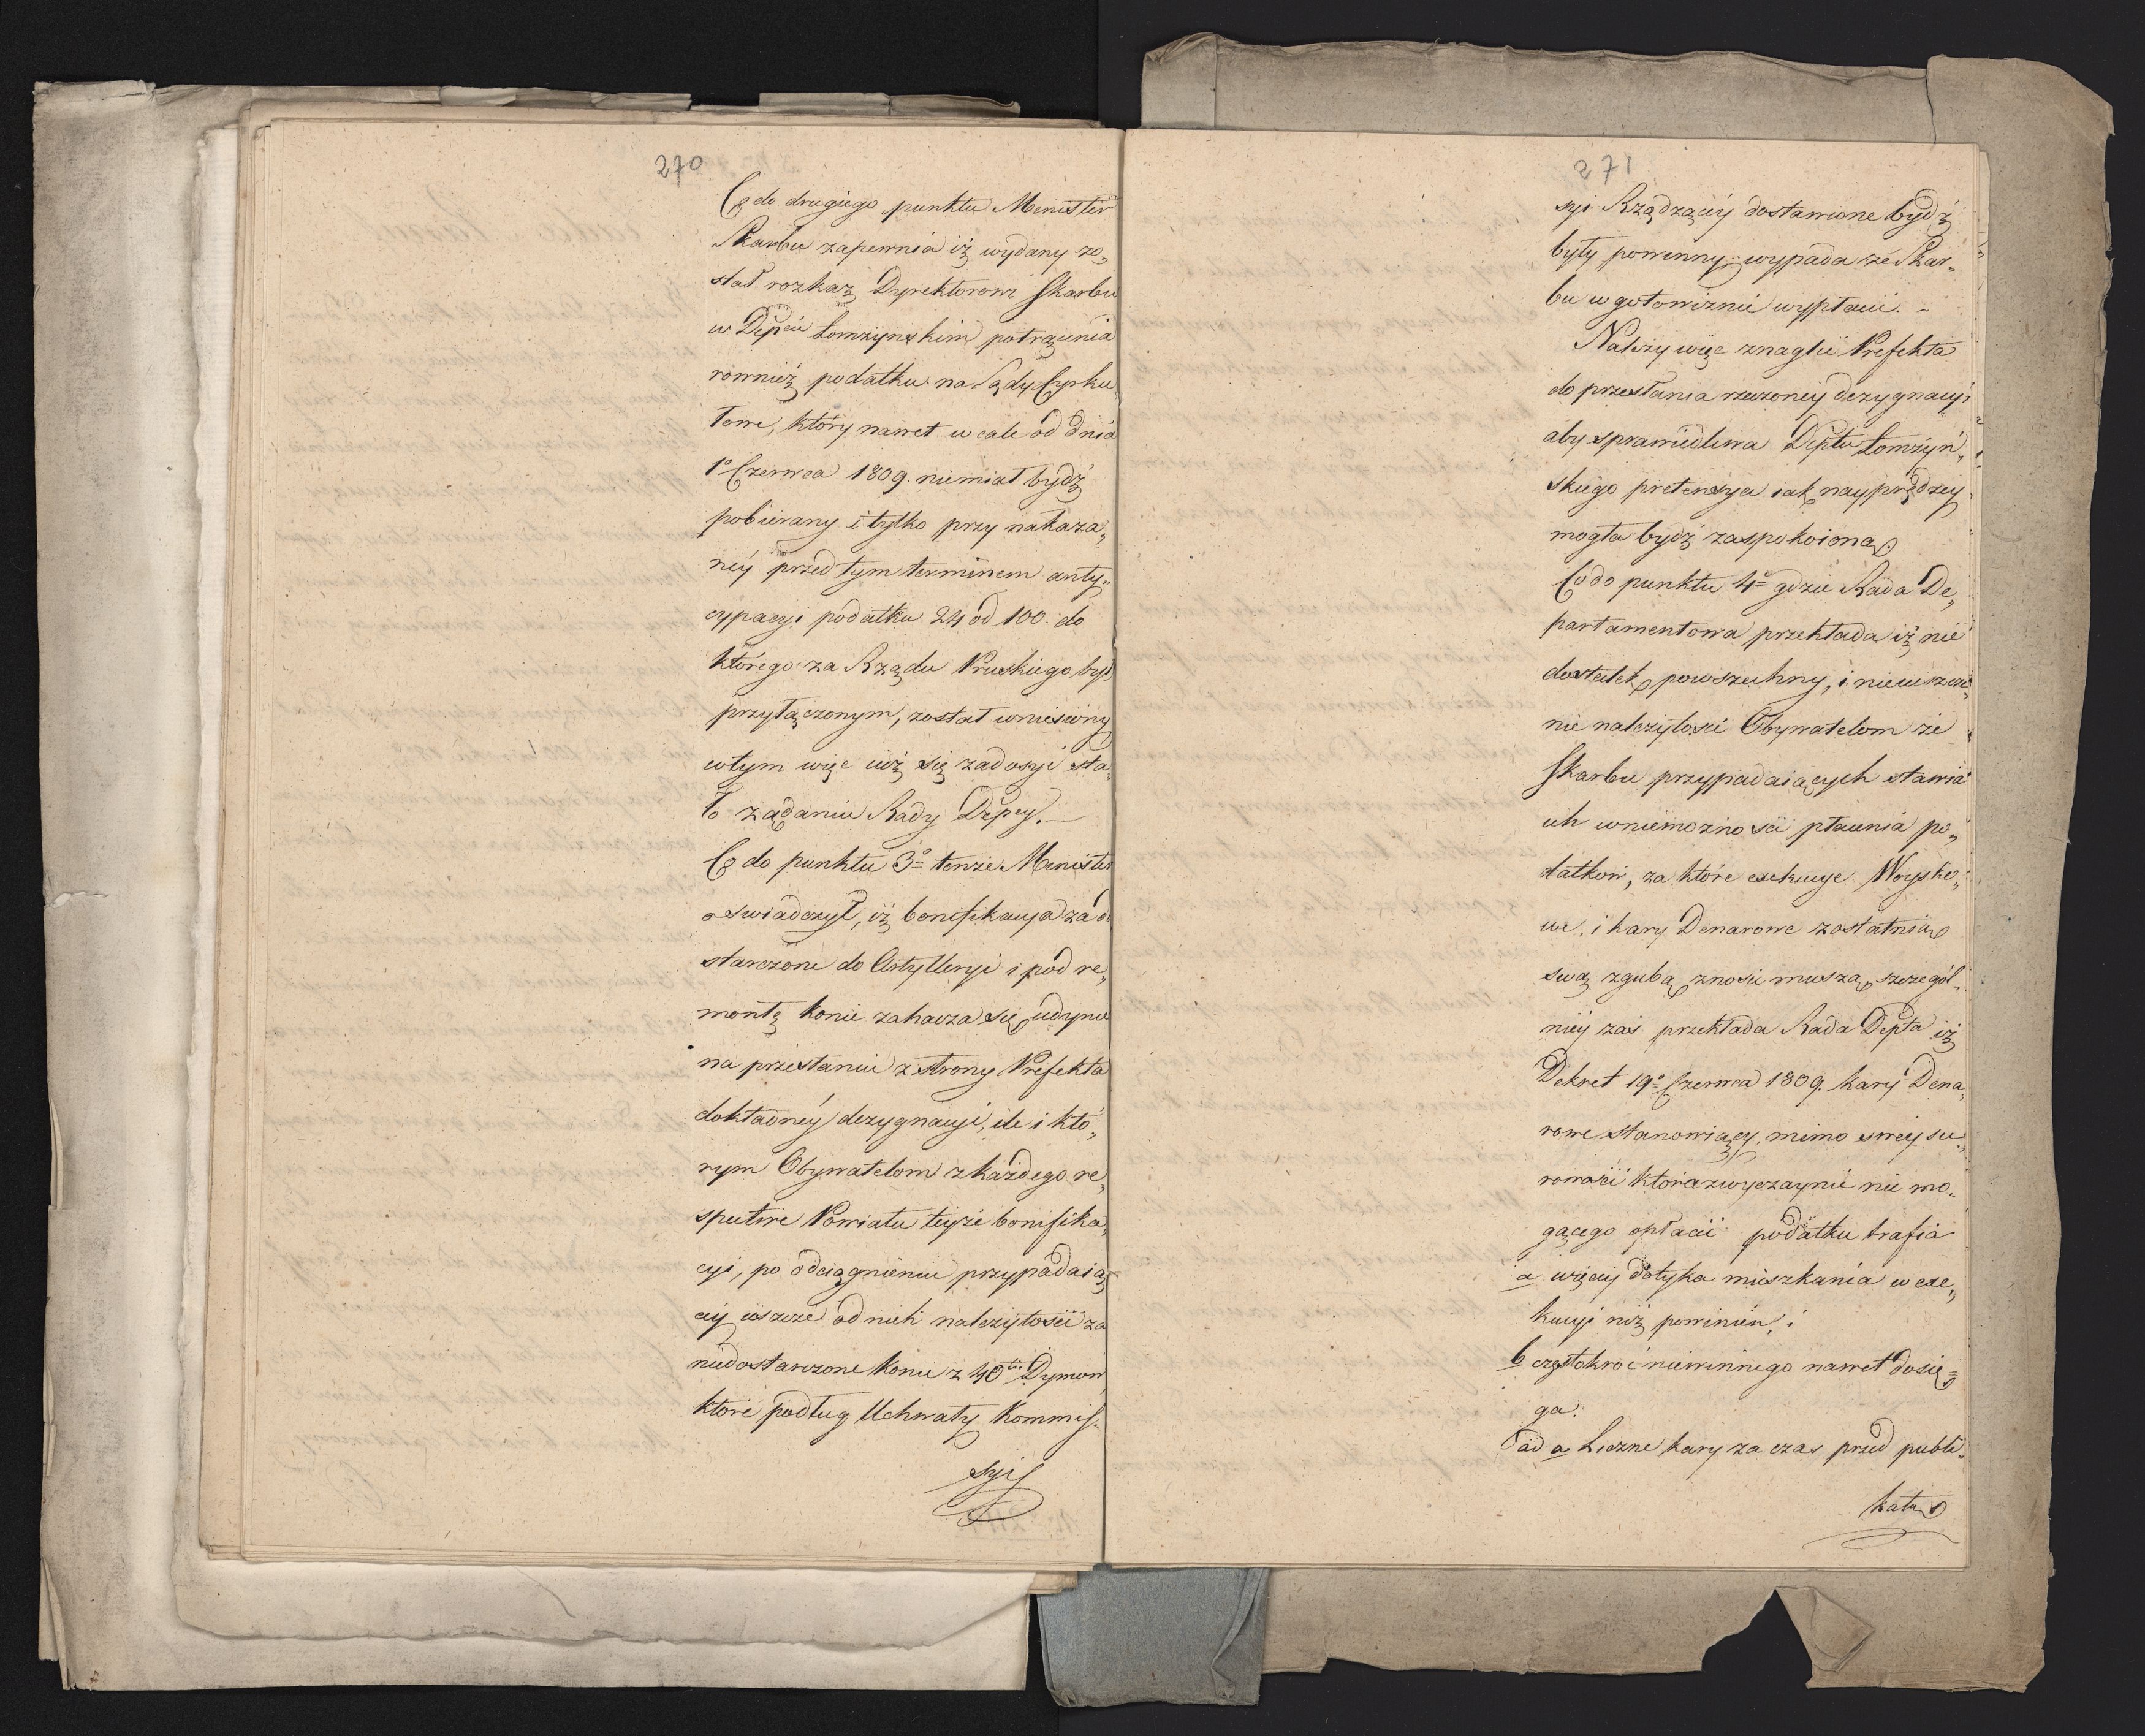 270
Co do drugiego punktu Minister
Skarbu zapewnia iż wydany zo„
stał rozkaz Dyrektorowi Skarbu
w Depcie Łomżynskim potrącenia
również podatku na Sądy Cyrku„
łowe, który nawet wcale od dnia
1° Czerwca 1809. niemiał bydź
pobierany i tylko przy nakaza„
néy przed tym terminem anty„
cypacyi podatku 24 od 100. do
którego za Rządu Pruskiego był
przyłączonym, został wniesiony
wtym więc iuż się zadosyć sta„
ło żądaniu Rady Depey.—
Co do punktu 3° tenże Minister
oswiadczył, iż bonifikacya za do
starczone do Artylleryi i pod re„
montę konie zahacza się iedynie
na przesłaniu z strony Prefekta
dokładnéy dezygnacyi, ile i któ„
rym Obywatelom z każdego re„
spective Powiatu teyże bonifika„
cyi, po odciągnieniu przypadaią„
cey ieszcze od nich należytości za
niedostarczone konie z 40tu Dymow
które podług Uchwały Kommis„
syi
271
syi Rządzącéy dostawione bydź
były powinny; wypada ze Skar„
bu w gotowiznie wypłacić. -
Należy więc znaglić Prefekta
do przesłania rzeczoney dezygnacyi
aby sprawiedliwa Deptu Łomżyń„
skiego pretensya iak nayprędzey
mogła bydź zaspokoiona.
Co do punktu 4° gdzie Rada De„
partamentowa przekłada iż nie
dostatek powszechny, i nieuiszcze„
nie należytości Obywatelom ze
Skarbu przypadaiących stawia
ich w niemożności płacenia po„
datkow, za które exekucye Woysko„
we, i kary Denarowe z ostatnią
swą zgubą znosić muszą, szczegól„
niéy zaś przekłada Rada Depta iż
Dekret 19° Czerwca 1809. kary Dena„
rowe stanowiący, mimo swey su„
rowości która zwyczaynie nie mo„
gącego opłacić podatku trafia
a więcéy dotyka mieszkania w exe„
kucyi niż powinien, i
b częstokroć niewinnego nawet dosię„
ga.
ad a Liczne kary za czas przed publi„
katą